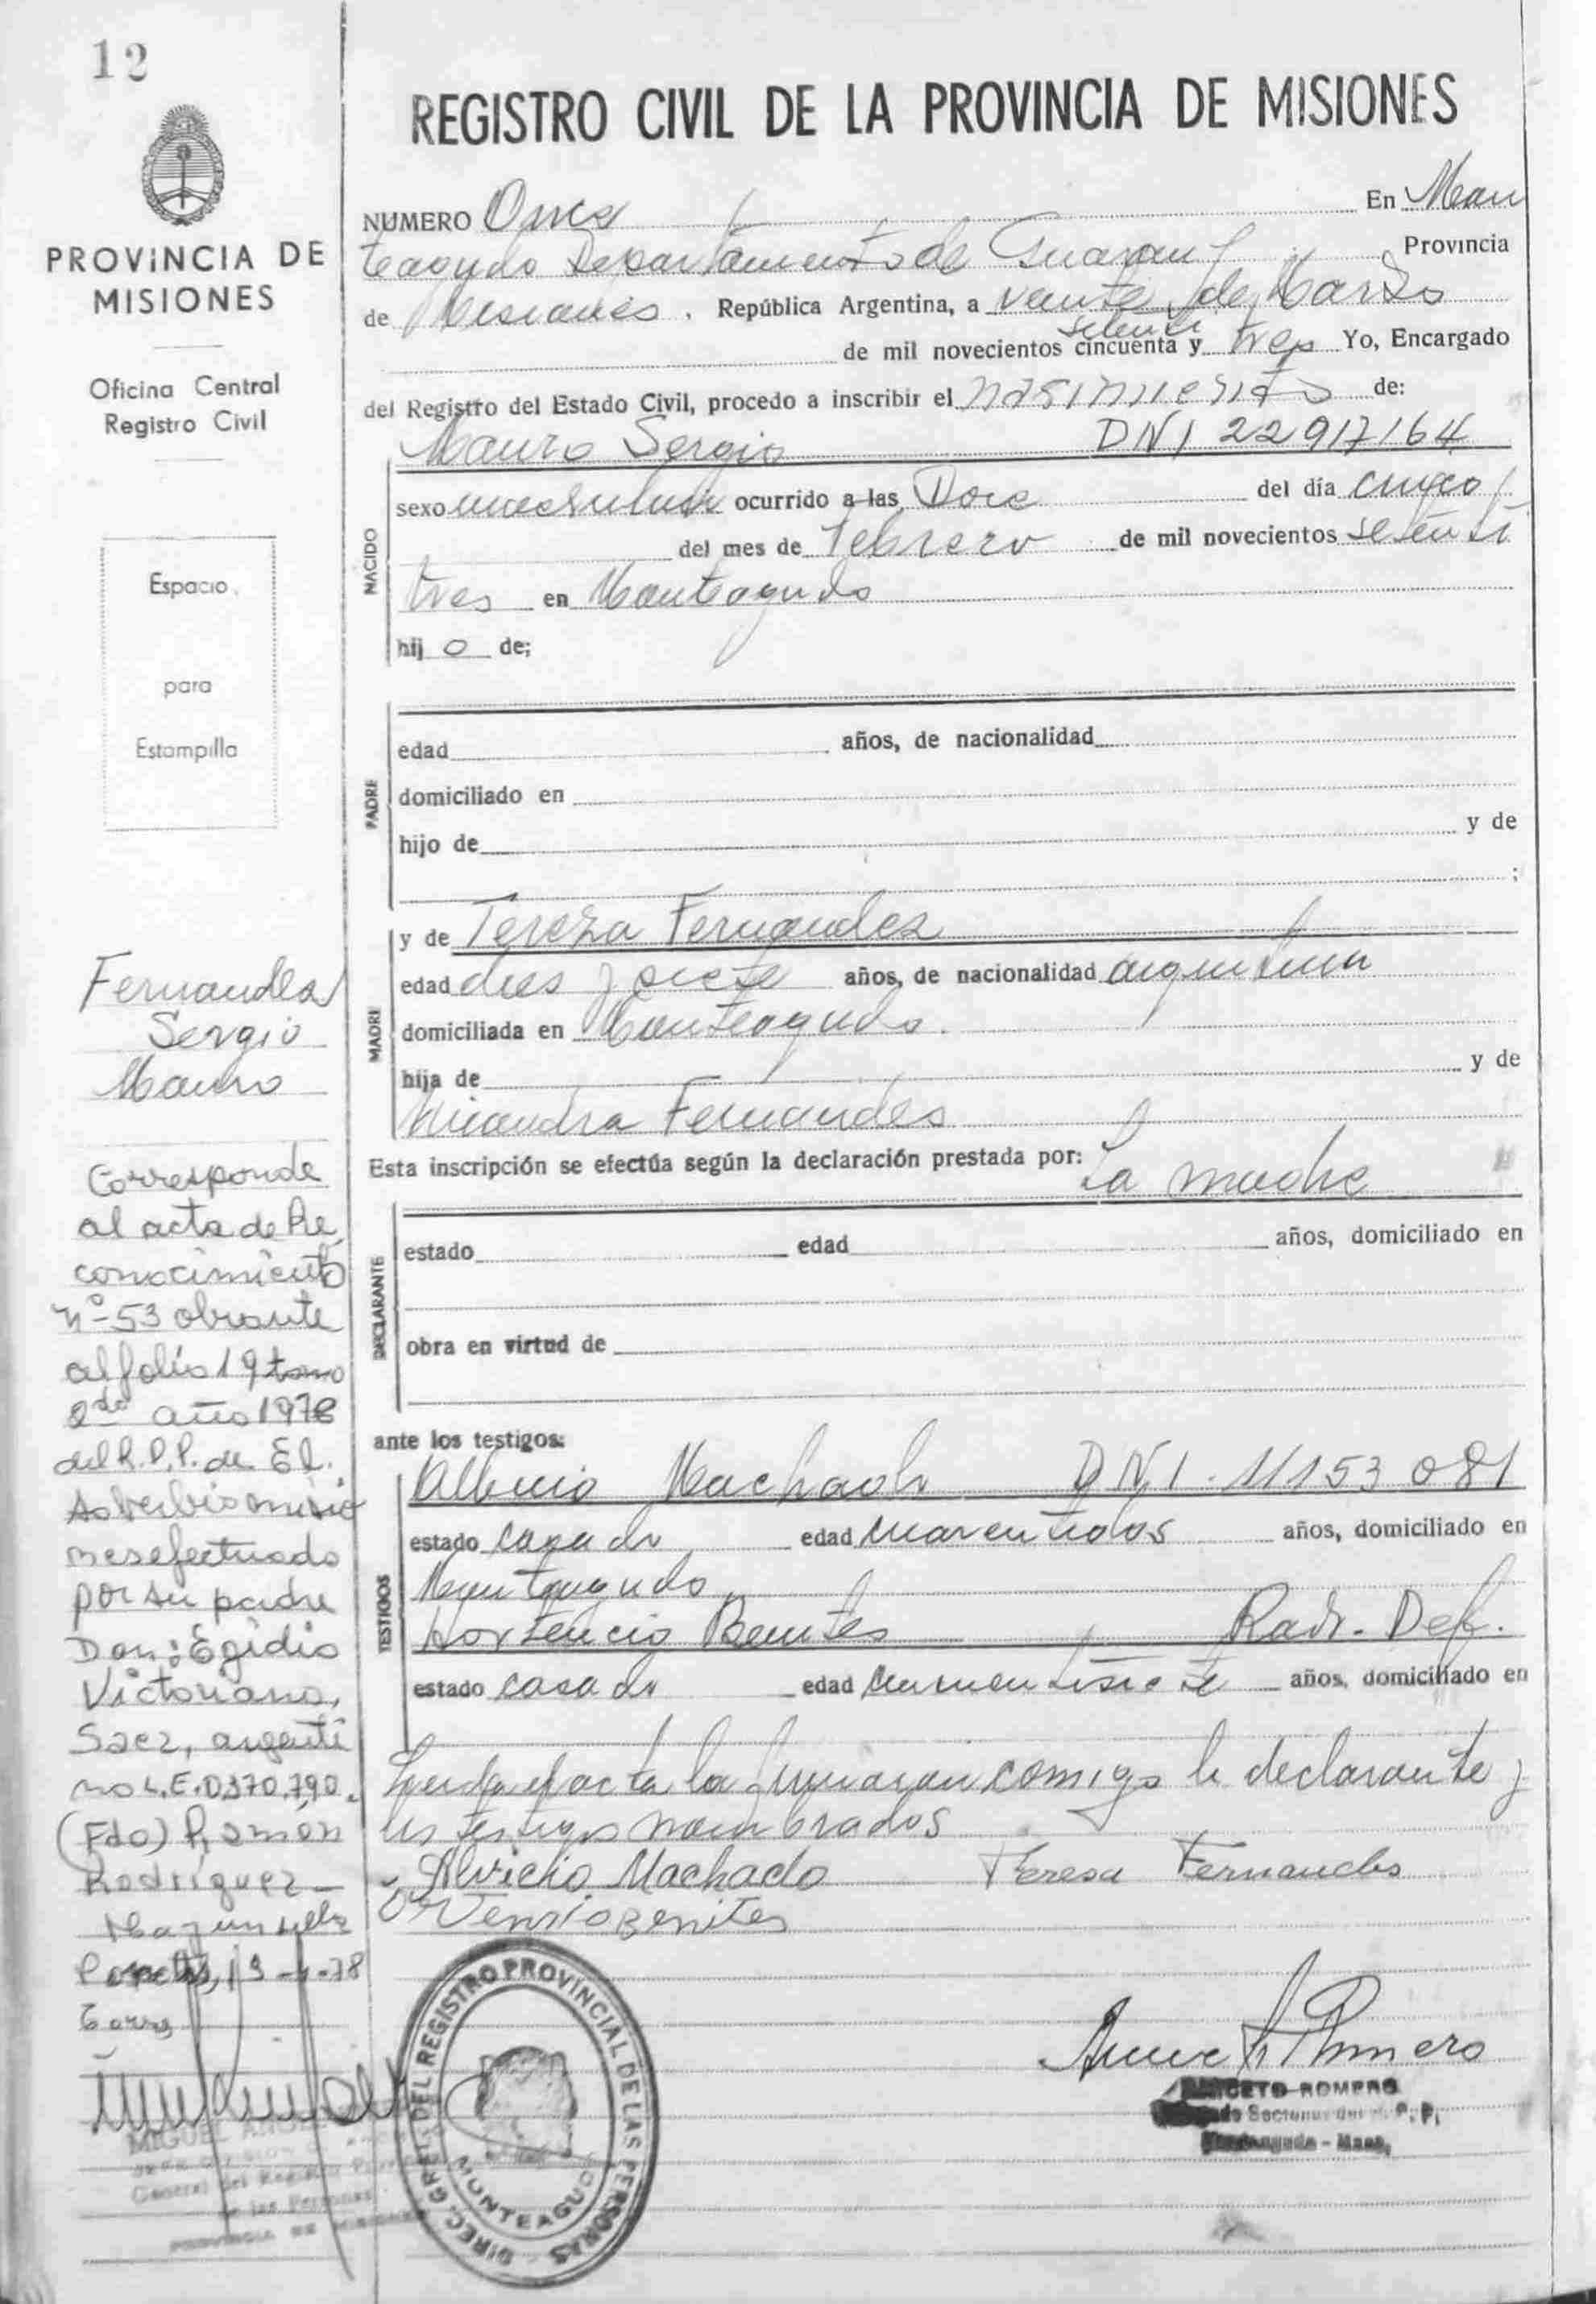 12
REGISTRO CIVIL DE LA PROVINCIA DE MISIONES
PROVINCIA DE
MISIONES
Oficina Central
Registro Civil
Espacio
para
Estampilla
NUMERO Once En Mon
teagudo Departamento de Guarani Provincia
de Misiones . República Argentina, a veinte de Marzo
setenti
de mil novecientos cincuenta y tres Yo, Encargado
del Registro del Estado Civil, procedo a inscribir el nasimiento de:
Mauro Sergio DNI 22917164
NACIDO
sexo masculino ocurrido a las Doce del día cinco
del mes de Febrero de mil novecientos setenti
tres en Monteagudo
hij o de;
PADRE
edad años, de nacionalidad
domiciliado en
hijo de y de
;
MADRE
y de Tereza Fernandez
edad dies y siete años, de nacionalidad argentina
domiciliada en Monteagudo.
hija de y de
Fernandes
Esta inscripción se efectúa según la declaración prestada por: La madre
DECLARANTE
estado edad años, domiciliado en
obra en virtud de
ante los testigos:
TESTIGOS
Machado DNI. 11153081
estado casado edad cuarentidos años, domiciliado en
Monteagudo
Hortencio Benites Radr. Def.
estado casado edad años, domiciliado en
Leida el acta la firmaran comigo la declarante y
los testigos nombrados
Alvicio Machado Teresa Fernandes
Benites
Fernandez
Sergio
Mauro
Corresponde
al acta de Re
conocimiento
nº 53 obrante
al folio 19 tomo
2do año 1978
del R.P.P. de El
Soberbio misio
nes efectuado
por su padre
Don: Egidio
Victoriano,
Saez, argenti
no L.E. 0370.790.
(Fdo) Ramón
Rodríguez
MIGUEL ANGEL
General del Registro
de las Personas
PROVINCIA DE MISIONES
DIREC. GRAL. DEL REGISTRO PROVINCIAL DE LAS PERSONAS
MONTEAGUDO
Romero
ROMERO